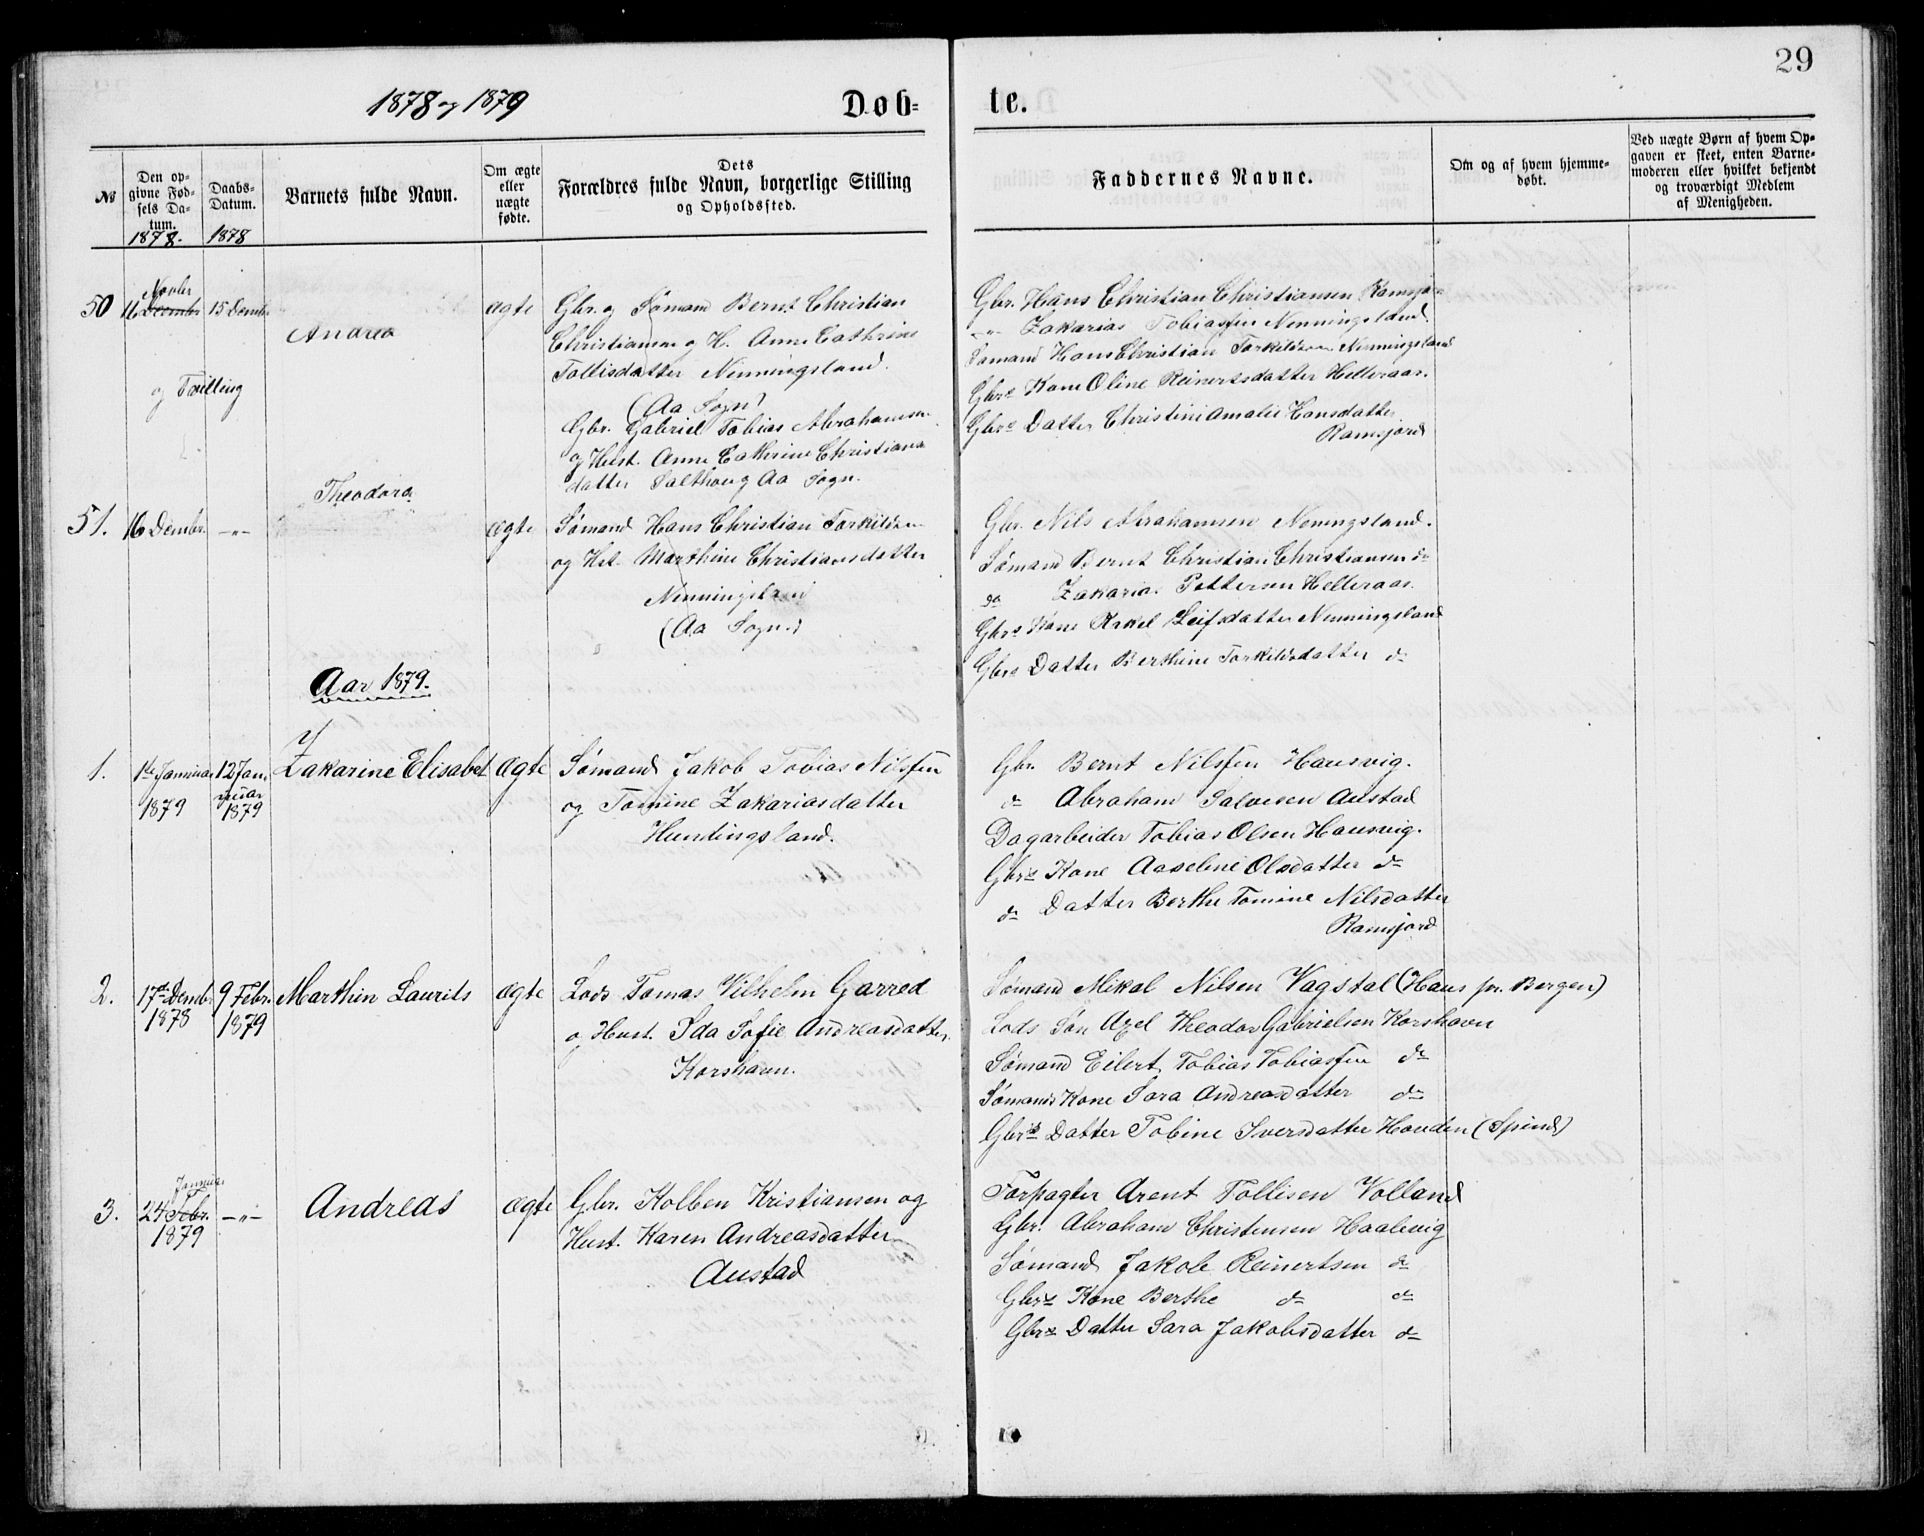 29
1878 og 1879
Døb-
te.
No
Den op-
givne Fød-
sels Da-
tum.
1878.
Daabs-
Datum.
1878
Barnets fulde Navn.
Om ægte
eller
uægte
fødte.
Dets
Forældres fulde Navn, borgerlige Stilling
og Opholdssted.
Faddernes Navne.
Om og af hvem hjemme-
døbt.
Ved uægte Børn af hvem Op-
gaven er skeet, enten Barne-
moderen eller hvilket bekjendt
og troværdigt Medlem
af Menigheden.
50
Novbr
11 Decembr
15 Dembr
Andrea
ægte
Gbr. og Sømand Bernt Christian
Christiansen og H. Anne Cathrine
Tollisdatter Nenningsland.
(Aa Sogn)
og Tvilling
Gbr. Gabriel Tobias Abrahamsen
og Hust. Anne Cathrine Christians
datter Salthoug Aa Sogn.
Gbr. Hans Christian Christiansen Ramsjor
-"- Zakarias Tobiassen Nenningsland.
Sømand Hans Christian Torkildsen Nenningsland
Gbrs Kone Oline Reinertsdatter Helleraas.
Gbrs Datter Christine Amalie Hansdatter
Ramsjord
51.
16 Dembr.
-"-
Theodora
ægte
Sømand Hans Christian Torkildsen
og Hst. Marthine Christiansdatter
Nenningsland
(Aa Sogn.)
Gbr. Nils Abrahamsen Neningsland.
Sømand Bernt Christian Christiansen do
do Zakarias Pettersen Helleraas.
Gbrs Kone Rakel Leifsdatter Nenningsland
Gbrs Datter Berthine Torkildsdatter do
Aar 1879.
1.
1ste Januar
1879
12 Jan-
nuar
1879
Zakarine Elisabet
ægte
Sømand Jakob Tobias Nilssen
og Tomine Zakariasdatter
Hundingsland.
Gbr. Bernt Nilssen Hausvig.
do Abraham Salvesen Austad
Dagarbeider Tobias Olsen Hausvig.
Gbrs Kone Aaseline Olsdatter do
do Datter Berthe Tomine Nilsdatter
Ramsjord
2.
17de Dembr
1878
9 Febr.
1879
Marthin Laurits
ægte
Lods Tomas Vilhelm Garred
og Hust. Ida Sofie Andreasdatter
Korshavn.
Sømand Mikal Nilsen Vagstal (Haus pr. Bergen)
Lods Søn Axel Theodor Gabrielsen Korshavn
Sømand Eilert Tobias Tobiassen do
Sømands Kone Sara Andreasdatter do
Gbrs Datter Tobine Iversdatter Houden (Spind)
3.
Januar
24 Febr.
1879
-"-
Andreas
ægte
Gbr. Kolben Kristiansen og
Hust. Karen Andreasdatter
Austad
Forpagter Arent Tollisen Volland
Gbr. Abraham Christensen Haalevig
Sømand Jakob Reinertsen do
Gbrs Kone Berthe do do
Gbrs Datter Sara Jakobsdatter do